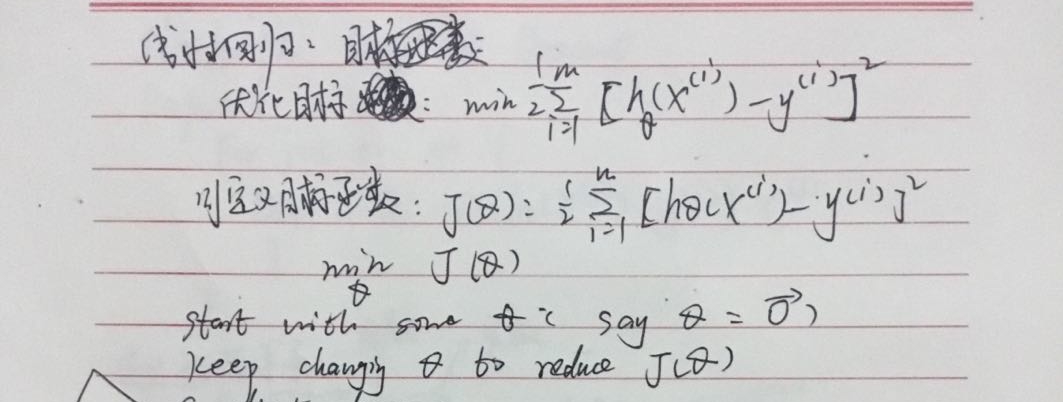 线性回归: 目标函数
优化目标: min 1/2 Σ_{i=1}^{m} [h_θ(x^{(i)}) - y^{(i)}]²
可定义目标函数: J(θ) = 1/2 Σ_{i=1}^{n} [hθ(x^{(i)}) - y^{(i)}]²
min_θ J(θ)
start with some θ (say θ = 0⃗)
keep changing θ to reduce J(θ)